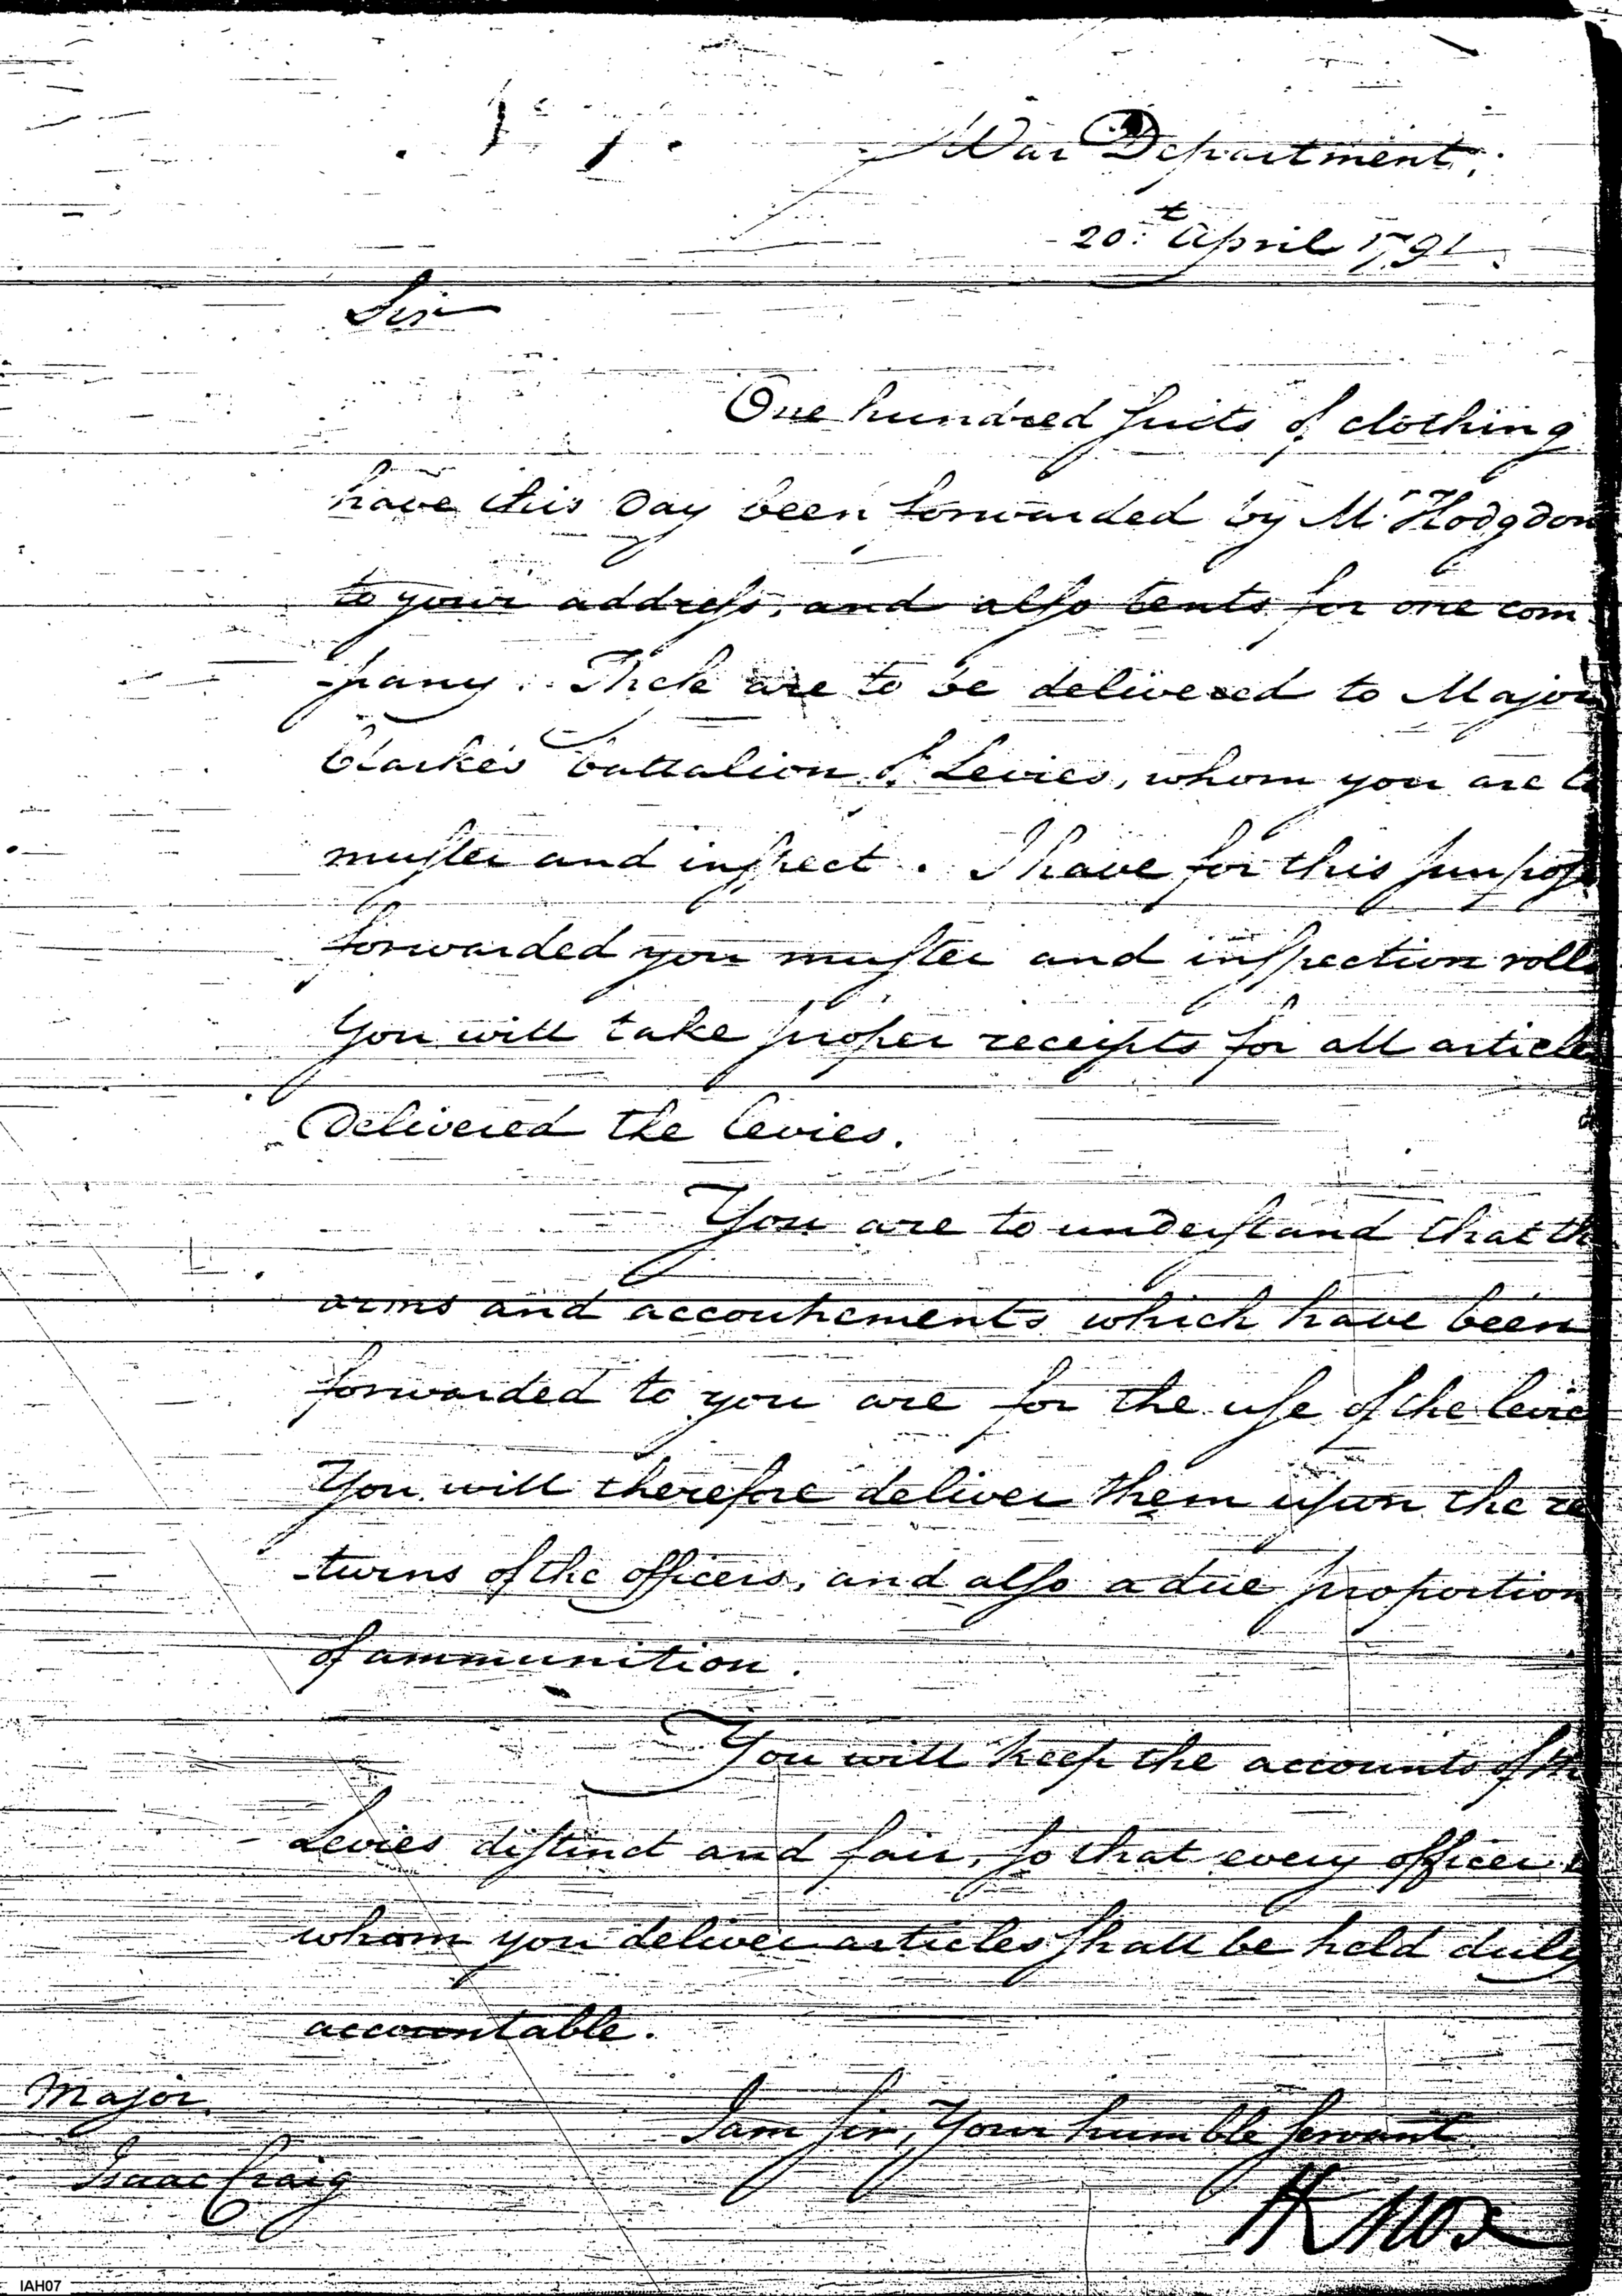 War Department,
20.t April 1791.
Sir
One hundred suits of clothing
have this Day been forwarded by Mr Hodgdon
to your address, and also tents for one com
-pany. These are to be delivered to Major
Clarke's battalion of Levies, whom you are
muster and inspect. I have for this purpose
forwarded you muster and inspection rolls
You will take proper receipts for all articles
Delivered the levies.
You are to understand that th
arms and accoutrements which have been
forwarded to you are for the use of the levie
You will therefore deliver them upon the re
-turns of the officers, and also a due proportion
of ammunition.
You will keep the accounts of th
Levies distinct and fair, so that every officer
whom you deliver articles shall be held duly
accountable.
Major
Isaac Craig
I am sir, Your humble servant
HKnox
IAH07